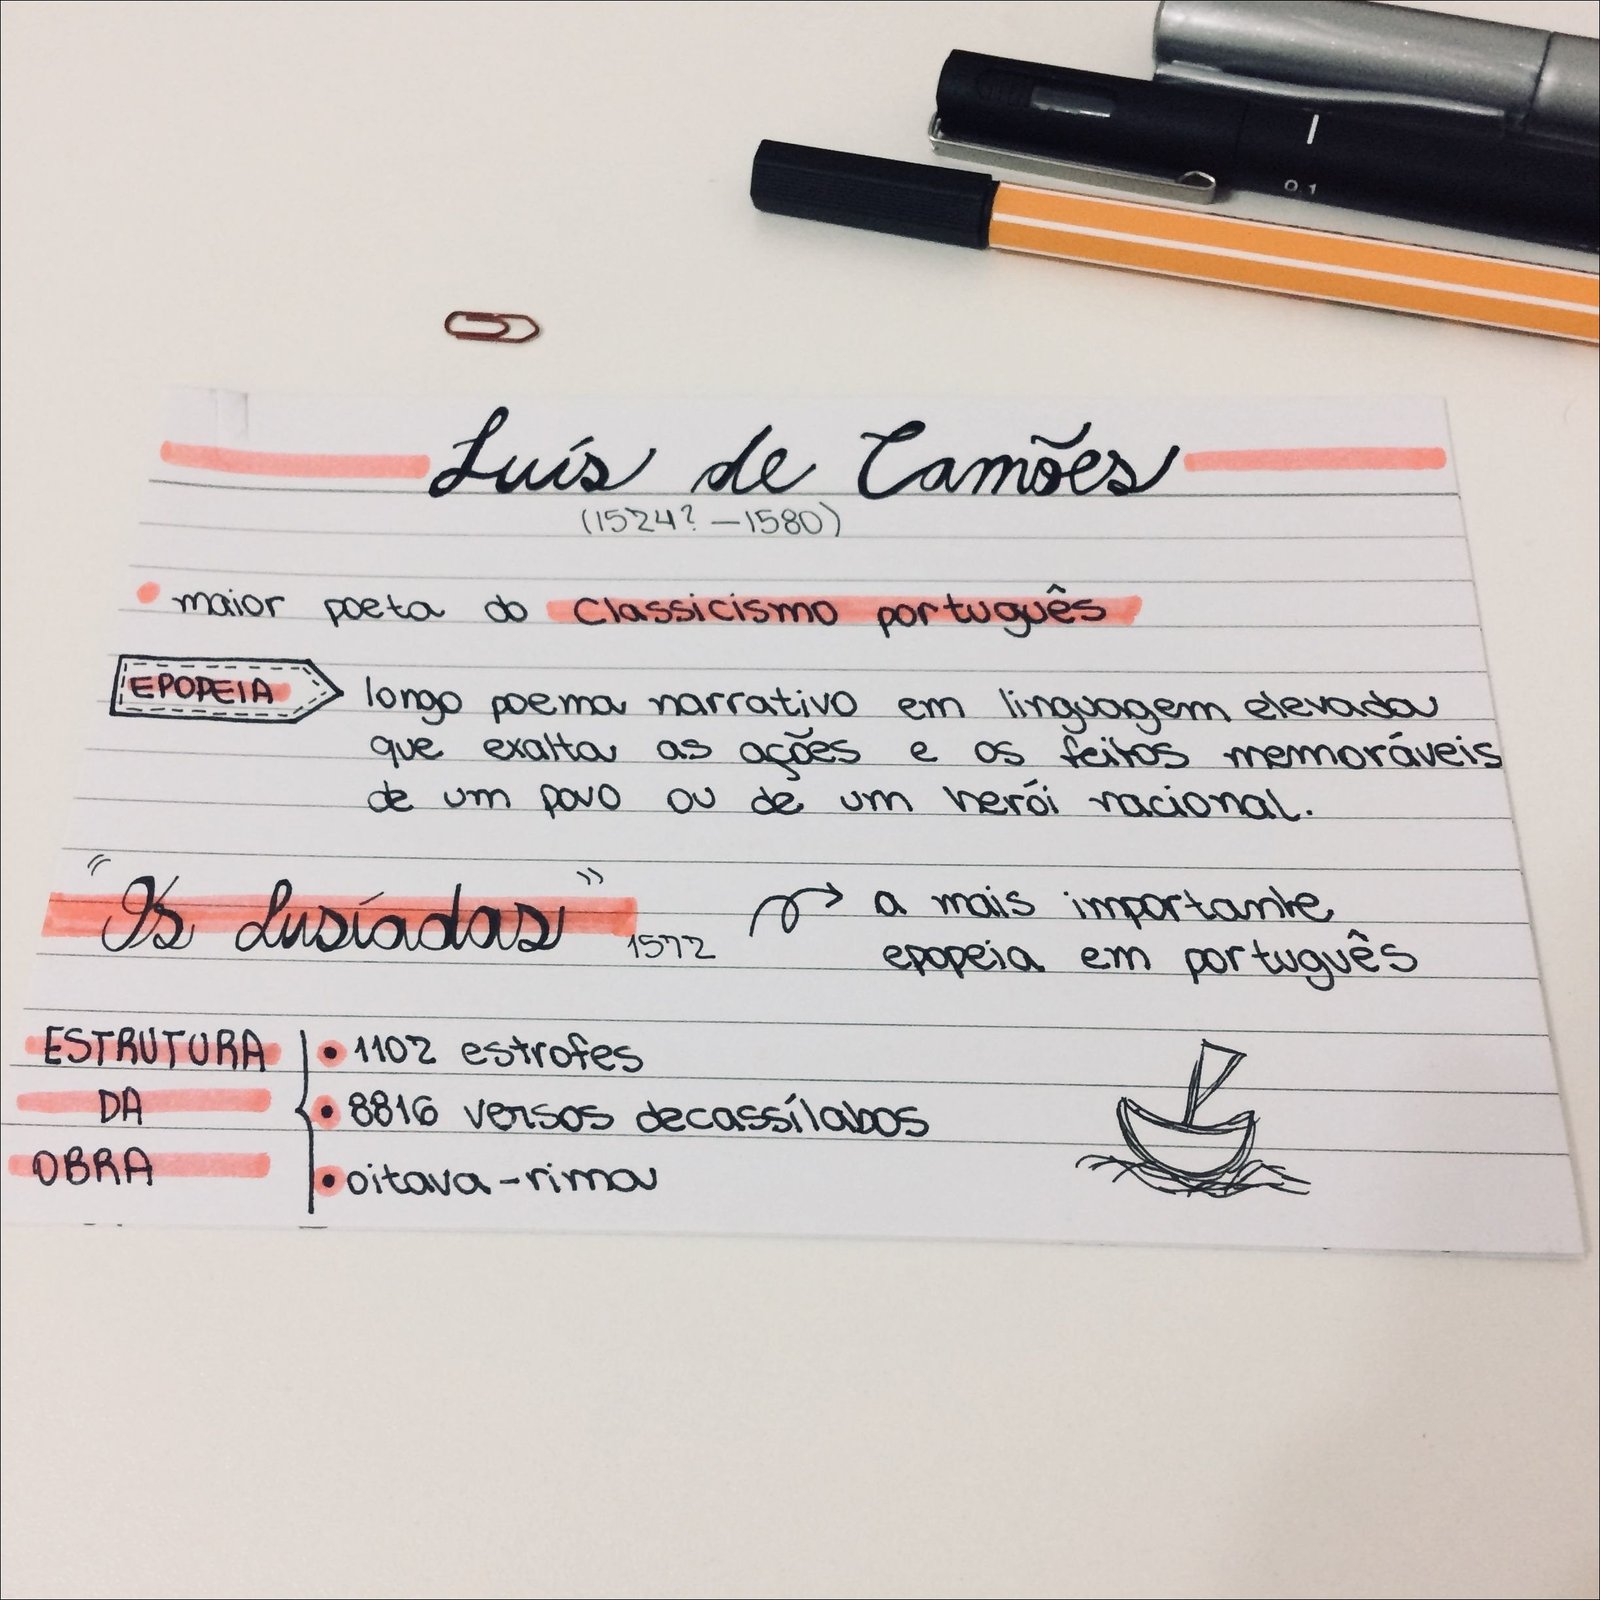 Luís de Camões
(1524? – 1580)
• maior poeta do Classicismo português
EPOPEIA longo poema narrativo em linguagem elevada
que exalta as ações e os feitos memoráveis
de um povo ou de um herói nacional.
"Os Lusíadas" 1572 → a mais importante
epopeia em português
ESTRUTURA • 1102 estrofes
DA • 8816 versos decassílabos
OBRA • oitava-rima
0.1